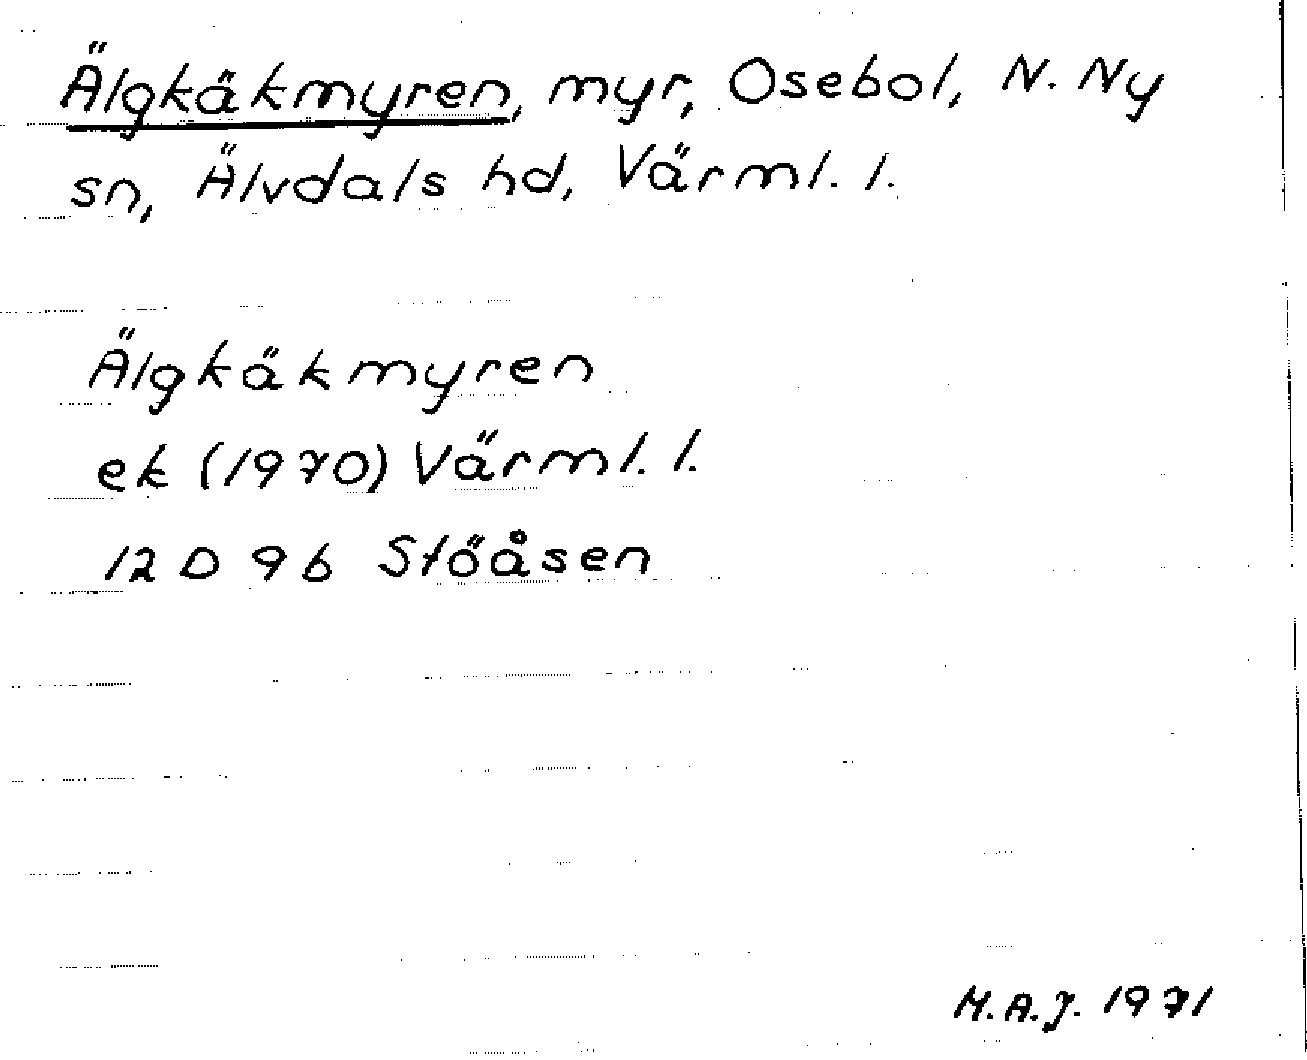 Älgkäkmyren, myr, Osebol, N. Ny
sn, Älvdals hd, Värml. l.
Älgkäkmyren
ek (1970) Värml. l.
12 D 9b Stöåsen
M.A.J. 1971